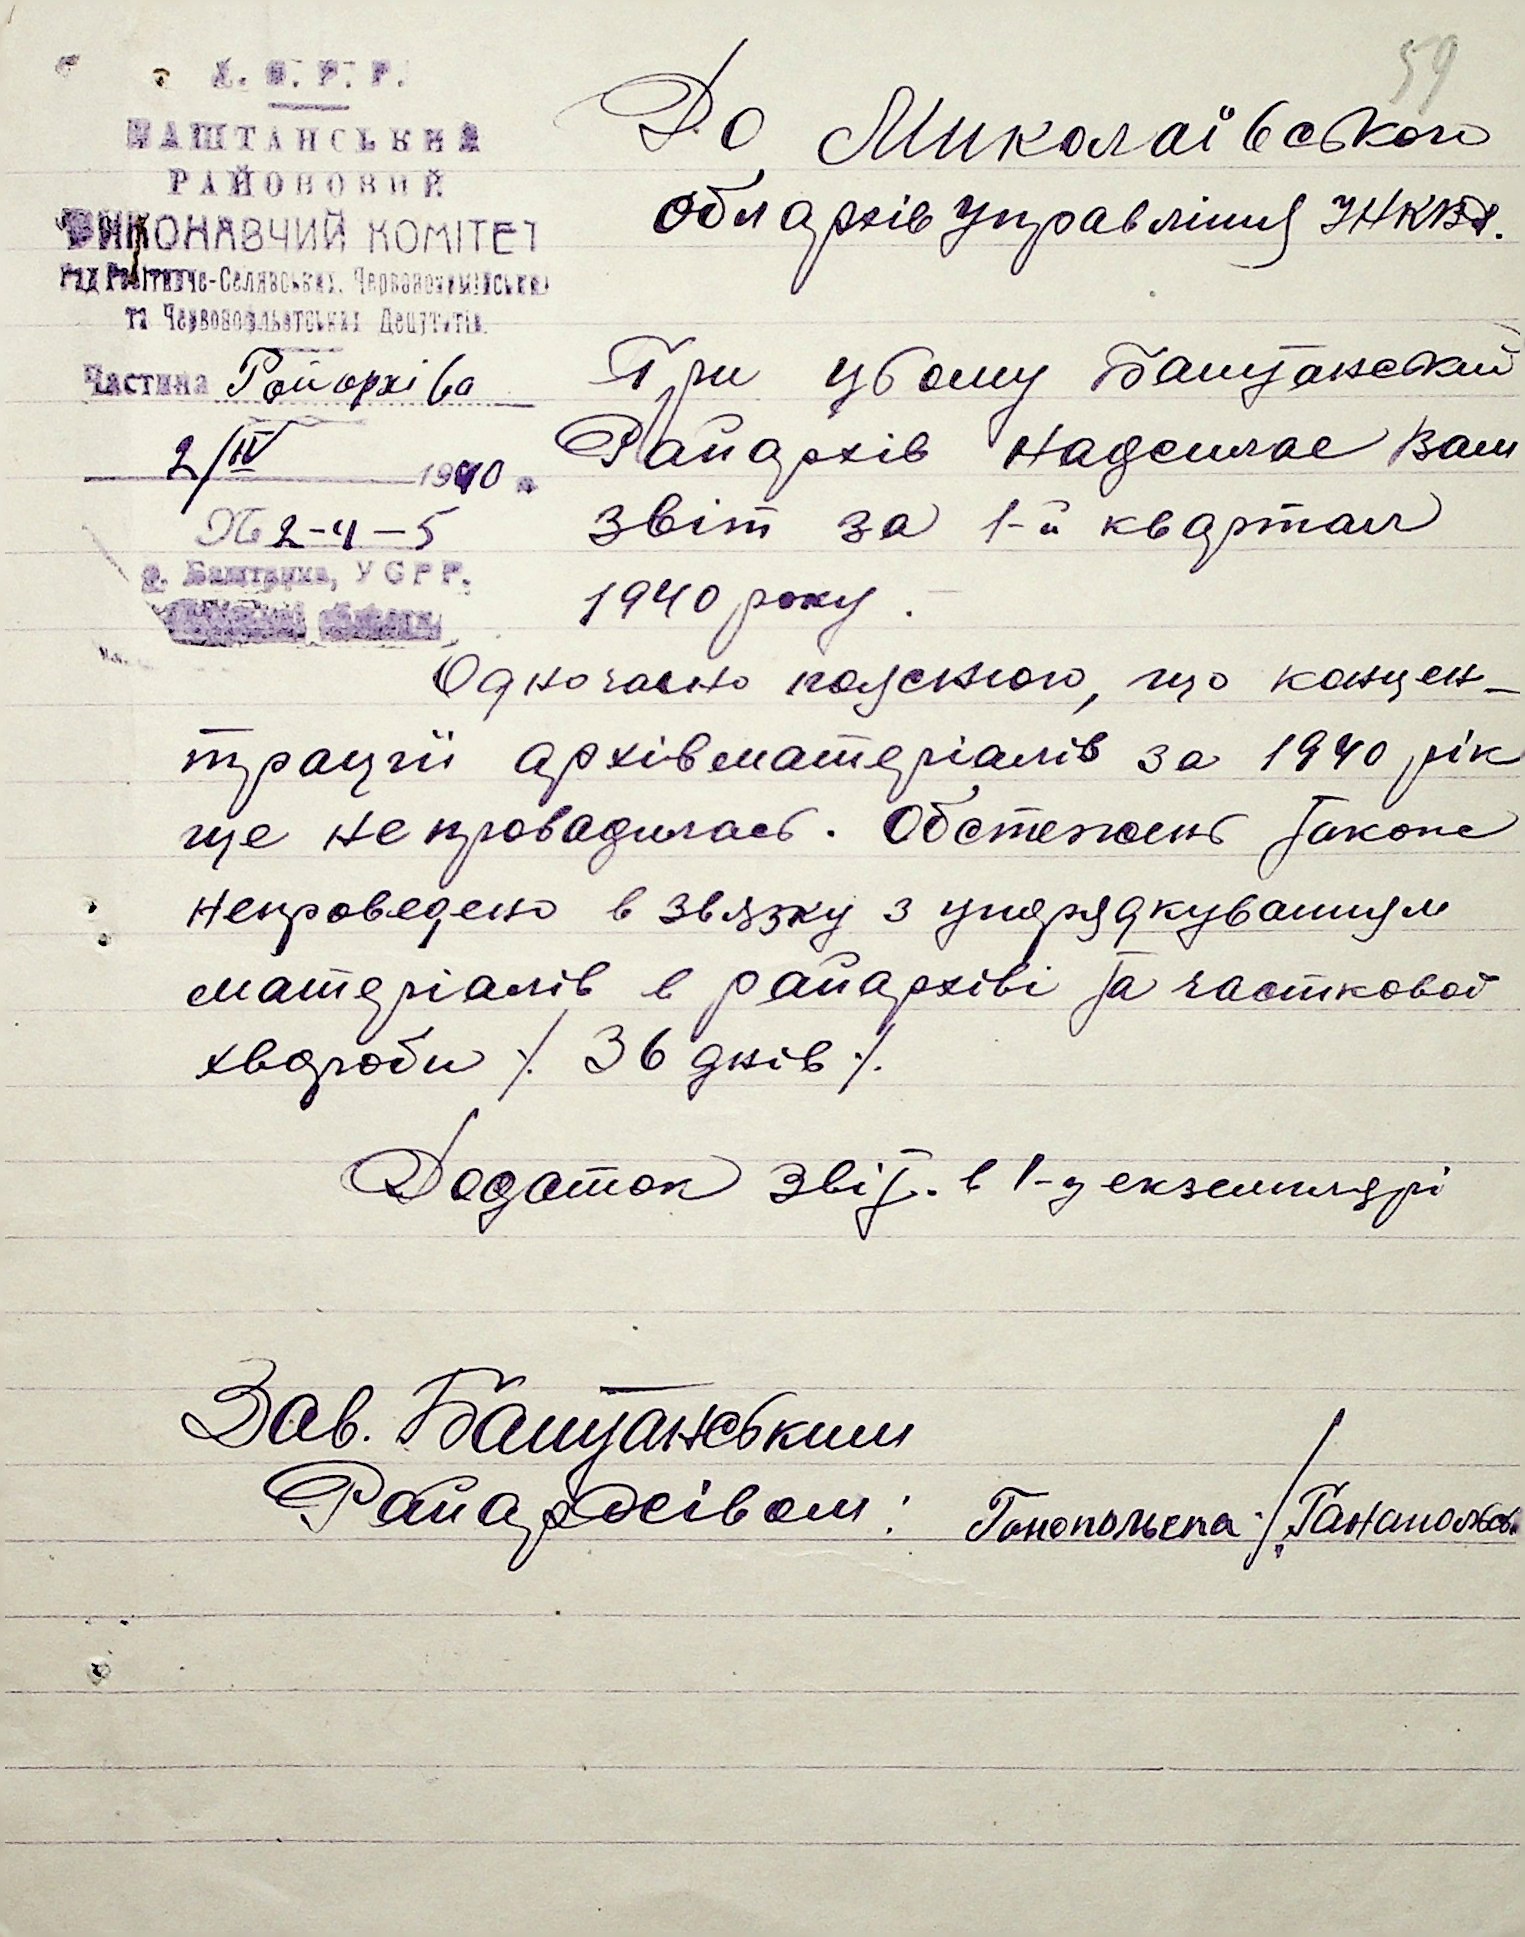 59
У. С. Р. Р.
БАШТАНСЬКИЙ
РАЙОНОВИЙ
ВИКОНАВЧИЙ КОМІТЕТ
Рад Робітниче-Селянських, Червоноармійських
та Червонофльотських Депутатів.
Частина Райархіва
2/IV 1940 р.
№ 2-4-5
с. Баштанка, УСРР.
До Миколаївського
облархівуправління УНКВД.
При цьому Баштанський
Райархів надсилає Вам
звіт за 1-й квартал
1940 року.
Одночасно пояснюю, що концен-
трації архівматеріалів за 1940 рік
ще не провадилась. Обстежень також
непроведено в звязку з упорядкуванням
матеріалів в райархіві та частковой
хвороби /. 36 днів ./.
Додаток звіт. в 1-у екземплярі
Зав. Баштанським
Райархівом: